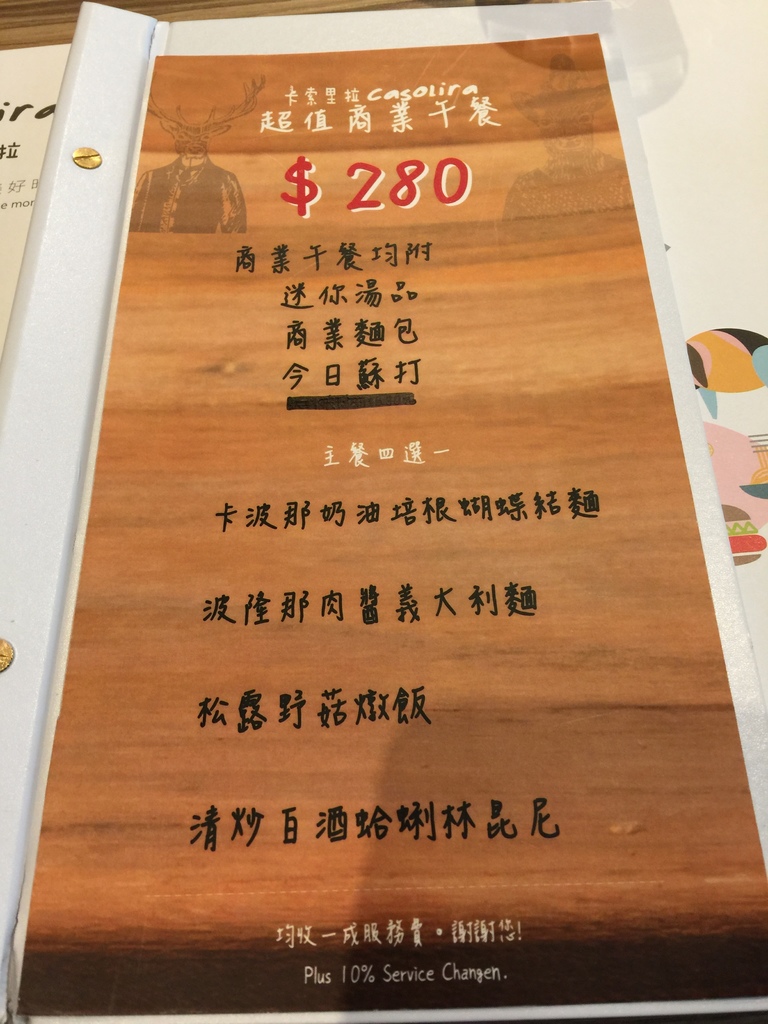 卡索里拉casolira
超值商業午餐
$280
商業午餐均附
迷你湯品
商業麵包
今日蘇打
主餐四選一
卡波那奶油培根蝴蝶結麵
波隆那肉醬義大利麵
松露野菇燉飯
清炒白酒蛤蜊林昆尼
均收一成服務費。謝謝您!
Plus 10% Service Changen.
ira
拉
好
e mor